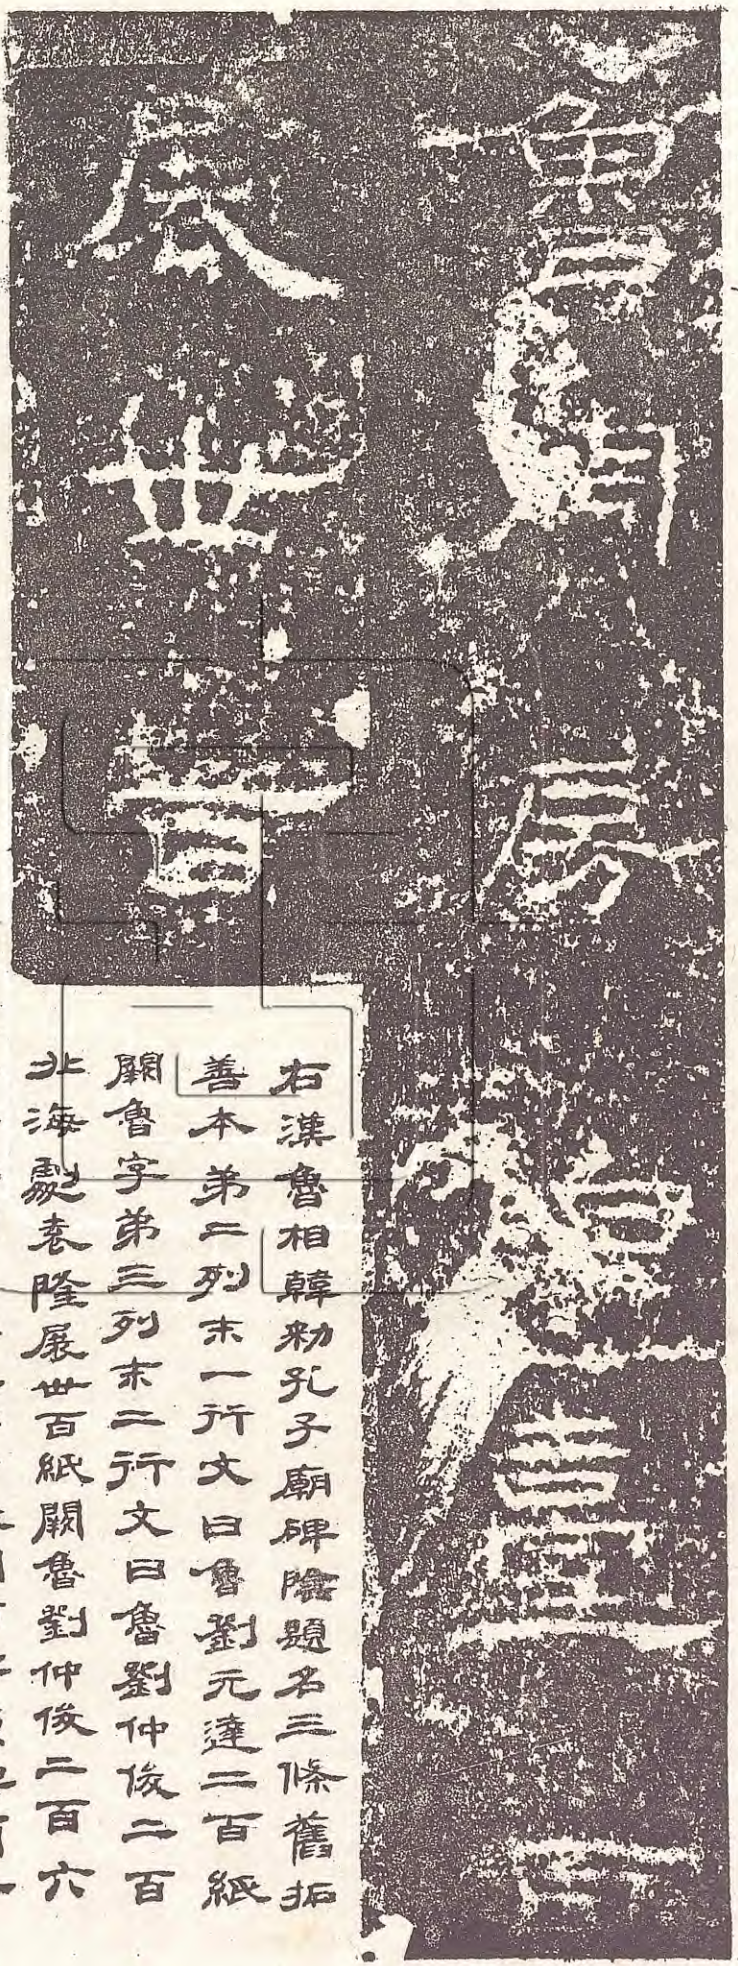 魯周房伯臺百
展世百
右漢魯相韓勑孔子廟碑陰題名三條舊拓
善本弟二列末一行文曰魯劉元達二百紙
闕魯字弟三列末二行文曰魯劉仲俊二百
北海劇袁隆展世百紙闕魯劉仲俊二百六